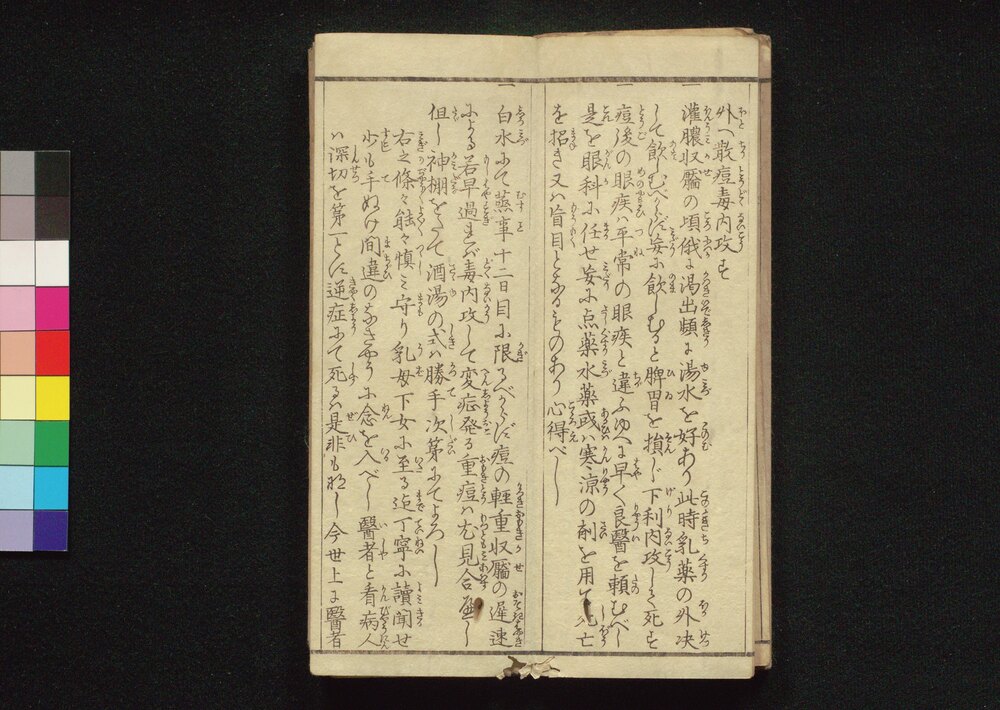 外へ散痘毒内攻す
一 灌膿収靨の頃俄に渇出頻に湯水を好あり此時乳薬の外决
して飲むべからず妄に飲しむると脾胃を損じ下利内攻して死す
一 痘後の眼疾ハ平常の眼疾と違ふゆへに早く良醫を頼むべし
是を眼科に任せ妄に点薬水薬或ハ寒涼の剤を用て死亡
を招き又ハ盲目となるものあり心得べし
一 白水にて蒸事十二日目に限るべからず痘の軽重収靨の遅速
による若早過れば毒内攻して変症発る重痘ハ尤見合べし
但し神棚をたて酒湯の式ハ勝手次第にてよろし
右之條々能々慎ミ守り乳母下女に至る迄丁寧に讀聞せ
少も手ぬけ間違のなきやうに念を入べし醫者と看病人
ハ深切を第一とす逆症にて死るハ是非も那し今世上に醫者